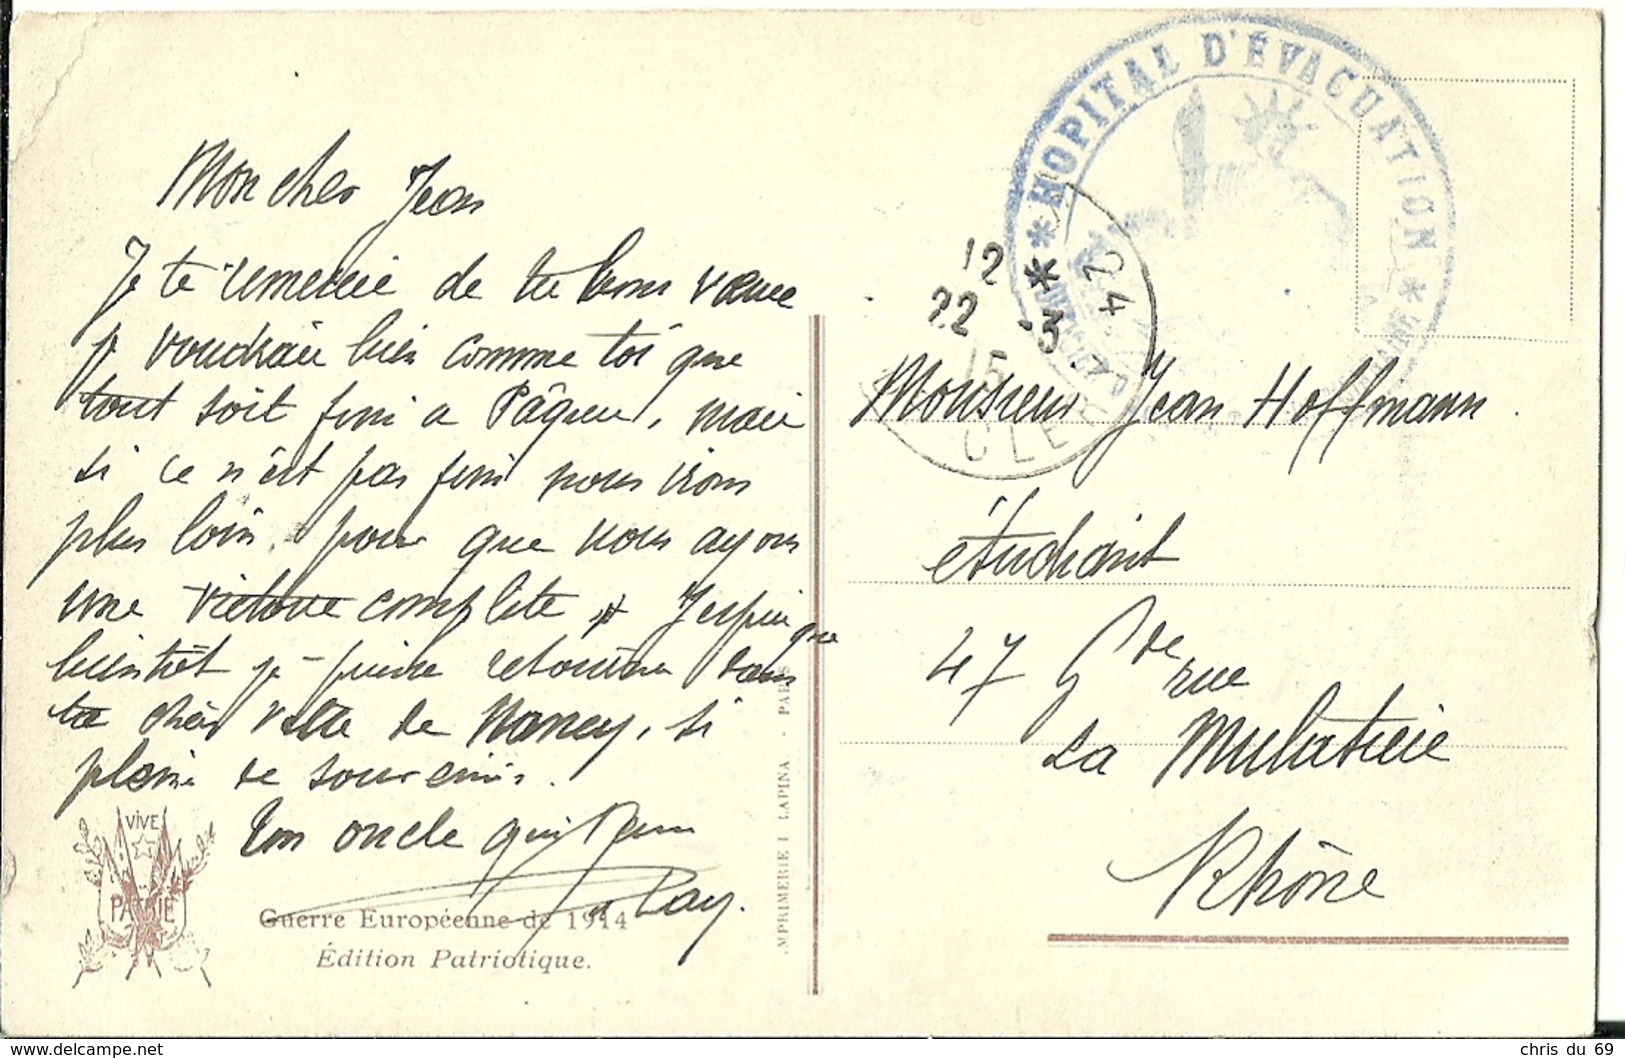 Mon cher Jean
Je te remercie de tes bons vœux
je voudrais bien comme toi que
tout soit fini a Pâques, mais
si ce n'est pas fini nous irons
plus loin, pour que nous ayons
une victoire complète J'espère que
bientôt je puisse retourner dans
ta chère ville de Nancy, si
pleine de souvenirs.
Ton oncle qui
VIVE
PATRIE
Guerre Européenne de 1914
Édition Patriotique.
IMPRIMERIE I LAPINA - PARIS
* HOPITAL D'ÉVACUATION *
12
22 3
15
Monsieur Jean Hoffmann
étudiant
47 Gde rue
La Mulatière
Rhône
https://www.delcampe.net
chris du 69